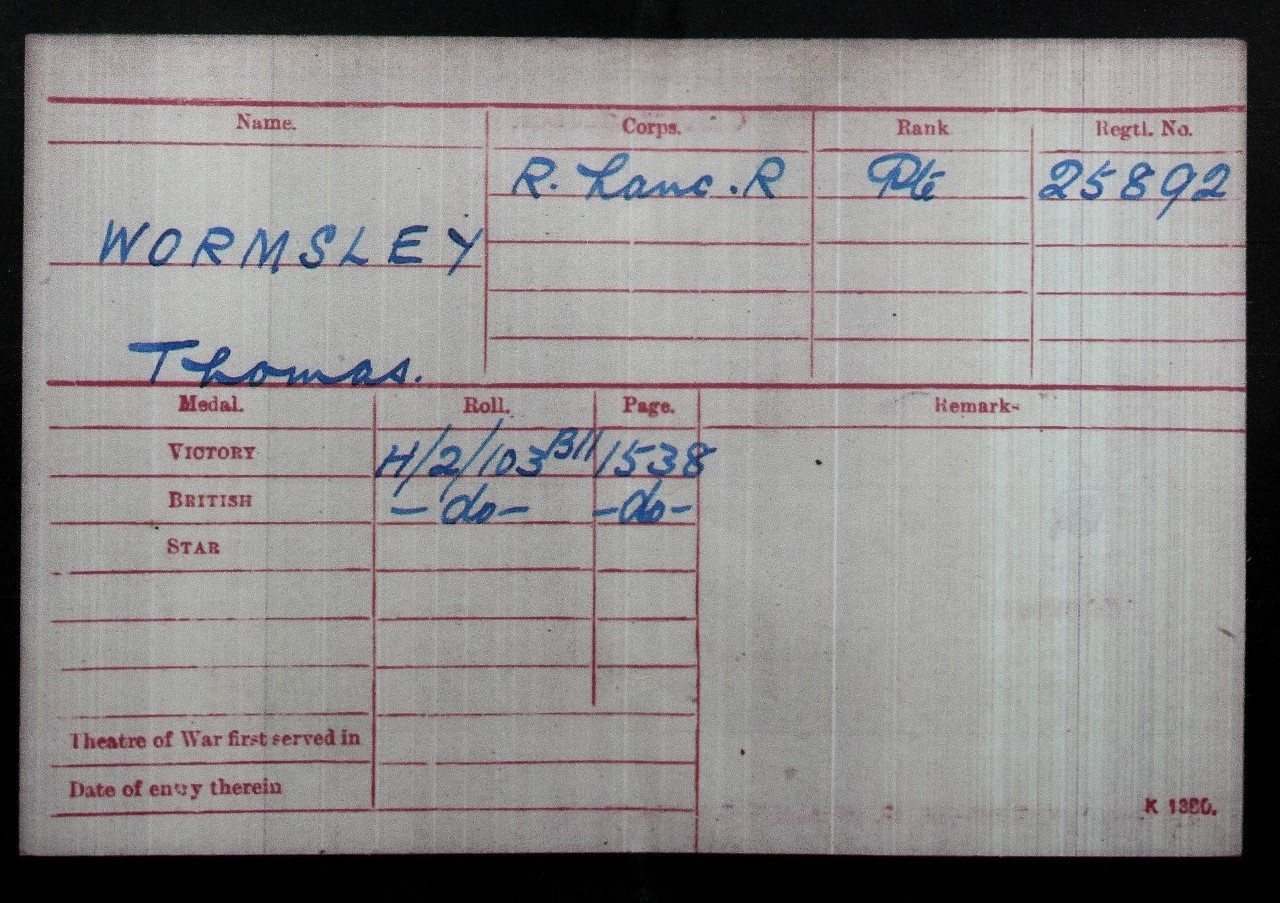 Name. Corps. Rank Regtl. No.
R. Lanc. R Pte 25892
WORMSLEY
Thomas.
Medal. Roll. Page. Remark-
VICTORY H/2/103 B11 1538
BRITISH -do- -do-
STAR
Theatre of War first served in
Date of entry therein
K 1380.